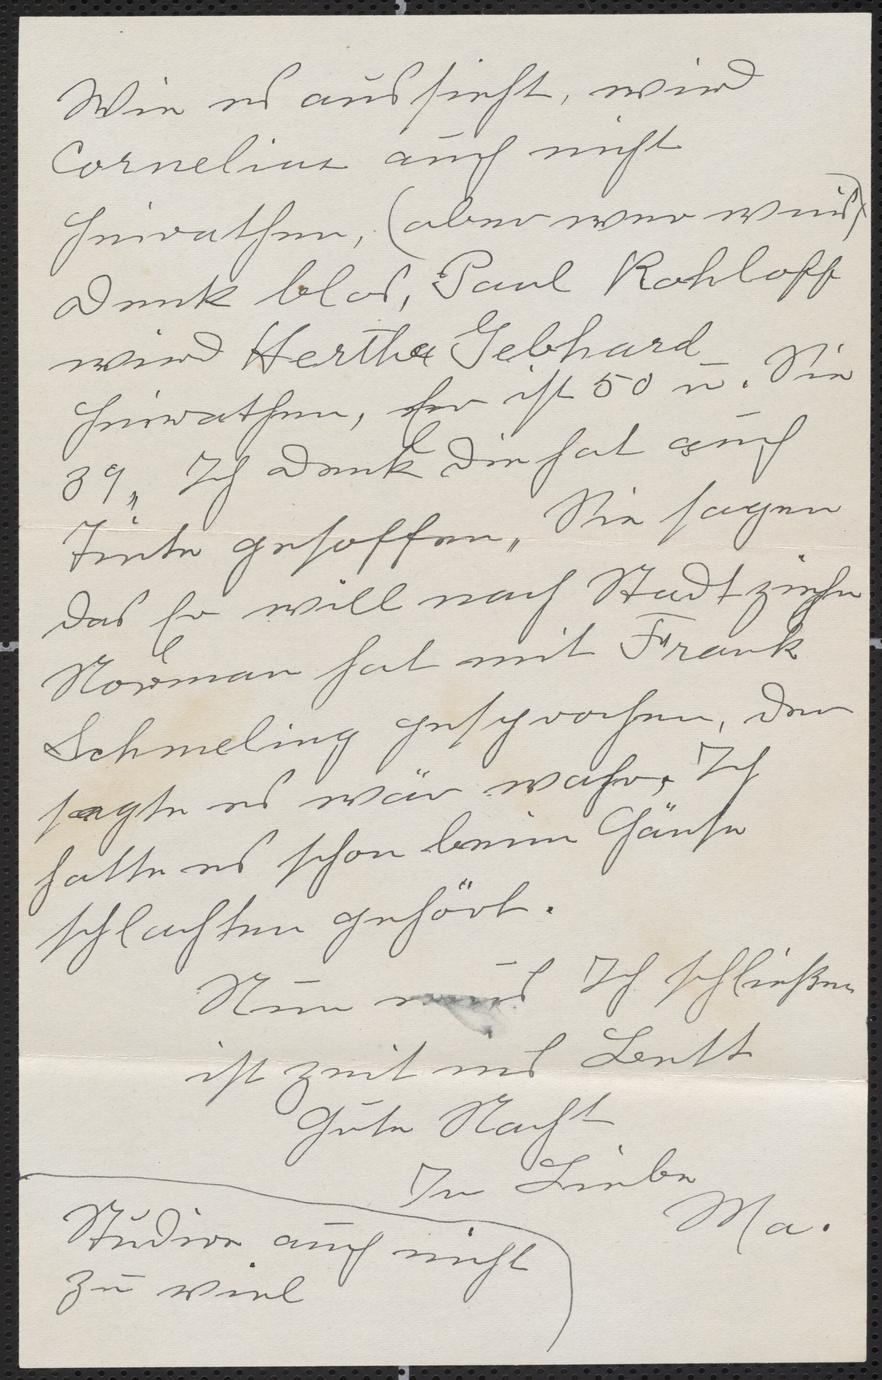 Wie es aussieht, wird
Cornelius auch nicht
heirathen, (aber wer weis)
Denk blos, Paul Rohloff
wird Hertha Gebhard
heirathen, Er ist 50 u. Sie
39„ Ich denk die hat auch
Tinte gesoffen„ Sie sagen
das Er will nach Stadt ziehn
Norman hat mit Frank
Schmeling gesprochen, der
sagte es wär wahr, Ich
hatte es schon beim Gänse
schlachten gehört.
Nun mus Ich schließen
ist zeit ins Bett
Gute Nacht
In Liebe
Ma.
Studire auch nicht
zu viel